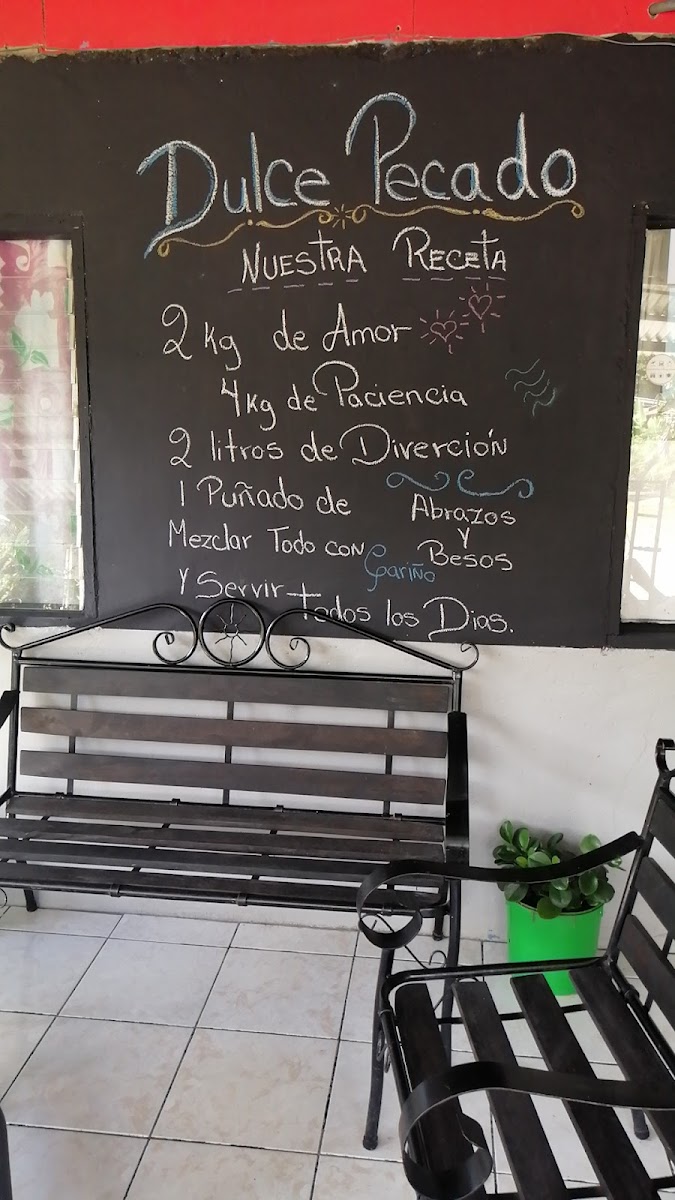 Dulce Pecado
NUESTRA RECETA
2 kg de Amor
4 kg de Paciencia
2 litros de Diverción
1 Puñado de Abrazos y Besos
Mezclar Todo con Cariño
y Servir todos los Dias.